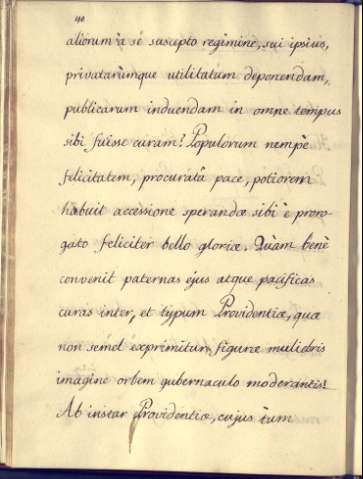 40
aliorum à sé suscepto regimine, sui ipsius,
privatarùmque utilitatum deponendam,
publicarum induendam in omne tempus
sibi fuisse curam? Populorum nempè
felicitatem, procuratâ pace, potiorem
habuit accessione sperandæ sibi è proro-
gato feliciter bello gloriæ. Quàm benè
convenit paternas ejus atque pacificas
curas inter, et typum Providentiæ, quæ
non semel exprimitur figuræ muliebris
imagine orbem gubernaculo moderantis!
Ab instar Providentiæ, cujus tum